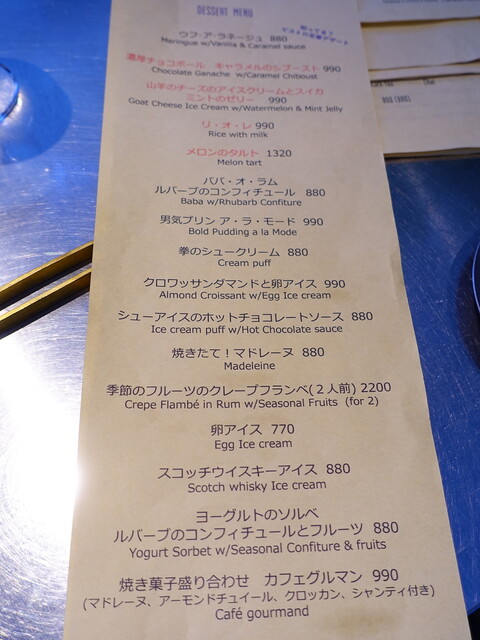 DESSERT MENU
ウフ・ア・ラネージュ 880
Meringue w/Vanilla & Caramel sauce
濃厚チョコボール キャラメルのシブースト 990
Chocolate Ganache w/Caramel Chiboust
山羊のチーズのアイスクリームとスイカ
ミントのゼリー 990
Goat Cheese Ice Cream w/Watermelon & Mint Jelly
リ・オ・レ 990
Rice with milk
メロンのタルト 1320
Melon tart
ババ・オ・ラム
ルバーブのコンフィチュール 880
Baba w/Rhubarb Confiture
男気プリン ア・ラ・モード 990
Bold Pudding a la Mode
拳のシュークリーム 880
Cream puff
クロワッサンダマンドと卵アイス 990
Almond Croissant w/Egg Ice cream
シューアイスのホットチョコレートソース 880
Ice cream puff w/Hot Chocolate sauce
焼きたて！マドレーヌ 880
Madeleine
季節のフルーツのクレープフランベ(２人前) 2200
Crepe Flambé in Rum w/Seasonal Fruits (for 2)
卵アイス 770
Egg Ice cream
スコッチウイスキーアイス 880
Scotch whisky Ice cream
ヨーグルトのソルベ
ルバーブのコンフィチュールとフルーツ 880
Yogurt Sorbet w/Seasonal Confiture & fruits
焼き菓子盛り合わせ カフェグルマン 990
(マドレーヌ、アーモンドチュイール、クロッカン、シャンティ付き)
Café gourmand